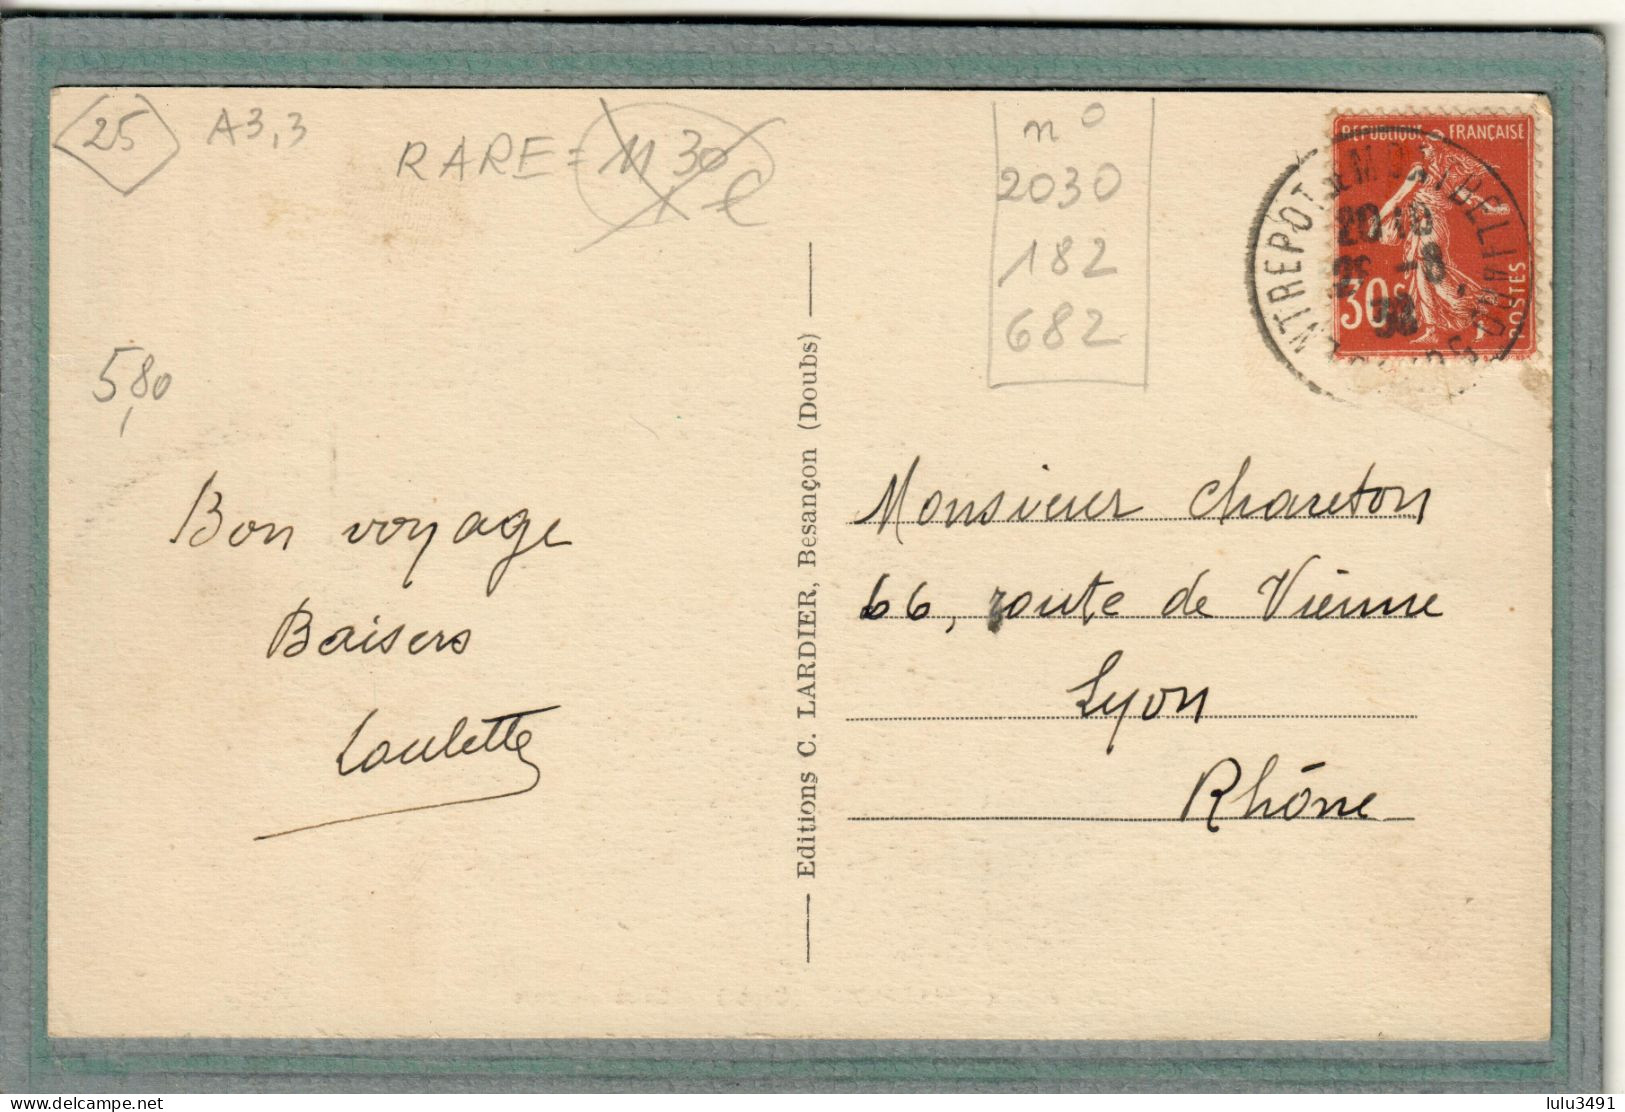 25
A3,3
RARE = 11 30 €
n°
2030
182
682
5,80
RÉPUBLIQUE FRANÇAISE
30c
POSTES
20 10
-8
ENTREPOT de MONTBELIARD
DOUBS
Bon voyage
Baisers
Loulette
Editions C. LARDIER, Besançon (Doubs)
Monsieur Chareton
66, route de Vienne
Lyon
Rhône
www.delcampe.net
lulu3491